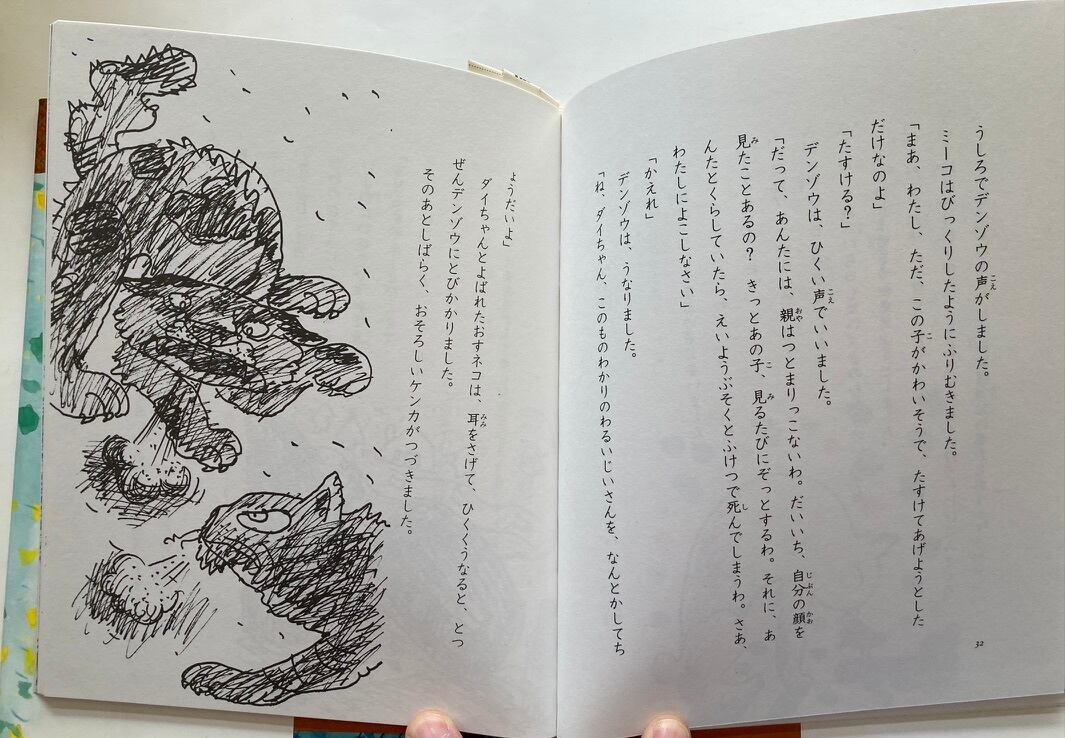 うしろでデンゾウの声がしました。
ミーコはびっくりしたようにふりむきました。
「まあ、わたし、ただ、この子がかわいそうで、たすけてあげようとした
だけなのよ」
「たすける？」
デンゾウは、ひくい声でいいました。
「だって、あんたには、親はつとまりっこないわ。だいいち、自分の顔を
見たことあるの？　きっとあの子、見るたびにぞっとするわ。それに、あ
んたとくらしていたら、えいようぶそくとふけつで死んでしまうわ。さあ、
わたしによこしなさい」
「かえれ」
デンゾウは、うなりました。
「ね、ダイちゃん、このものわかりのわるいじいさんを、なんとかしてち
32
ょうだいよ」
ダイちゃんとよばれたおすネコは、耳をさげて、ひくくうなると、とつ
ぜんデンゾウにとびかかりました。
そのあとしばらく、おそろしいケンカがつづきました。